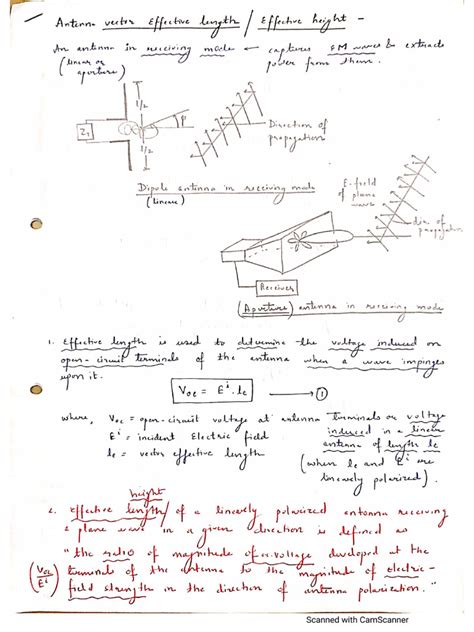 Antenna vector Effective length / Effective height -
An antenna in receiving mode ← captures EM waves & extracts
(linear or aperture)
power from them.
l/2
l/2
Z
Direction of
propagation
Dipole antenna in receiving mode
(linear)
E-field
of plane
wave
dir. of
propagation
Receiver
(Aperture) antenna in receiving mode
1. Effective length is used to determine the voltage induced on
open-circuit terminals of the antenna when a wave impinges
upon it.
Voc = E^i . le → ①
where, Voc = open-circuit voltage at antenna terminals or voltage
induced in a linear
antenna of length le
E^i = incident Electric field
le = vector effective length
(where le and E^i are
linearly polarized).
height
2. Effective length / of a linearly polarized antenna receiving
a plane wave in a given direction is defined as
"the ratio of magnitude of o.c. voltage developed at the
(Voc/E^i) terminals of the antenna to the magnitude of electric-
field strength in the direction of antenna polarization."
Scanned with CamScanner